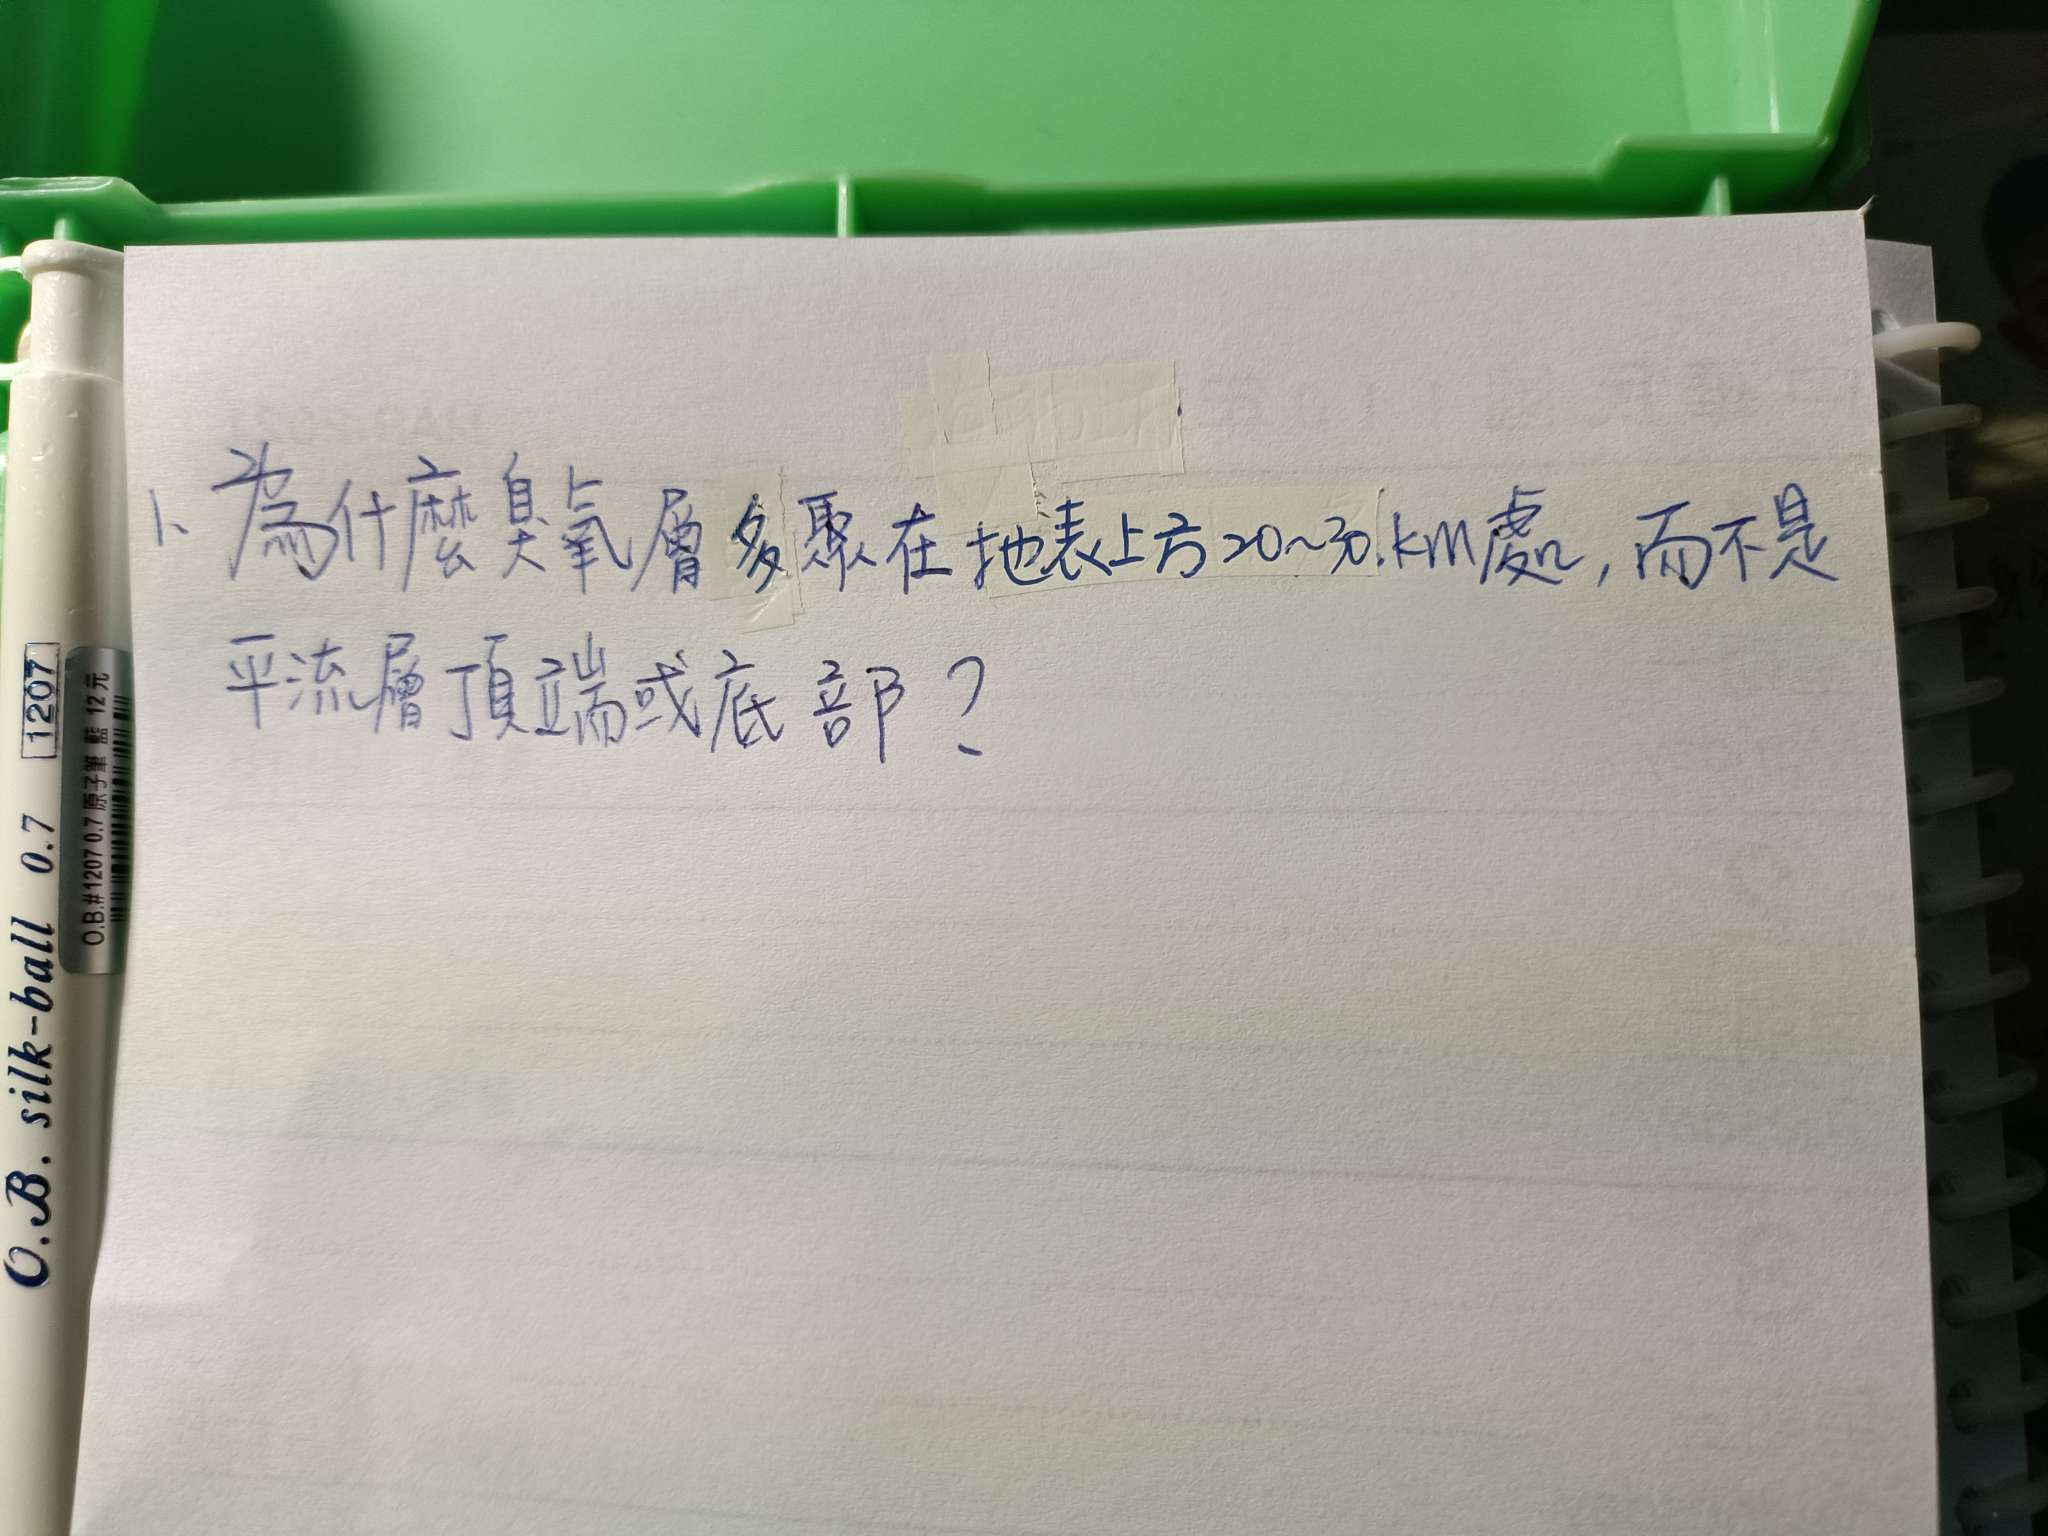 1、為什麼臭氧層多聚在地表上方20~30.km處,而不是
平流層頂端或底部?
O.B. silk-ball 0.7 1207
O.B.#1207 0.7原子筆 藍 12元